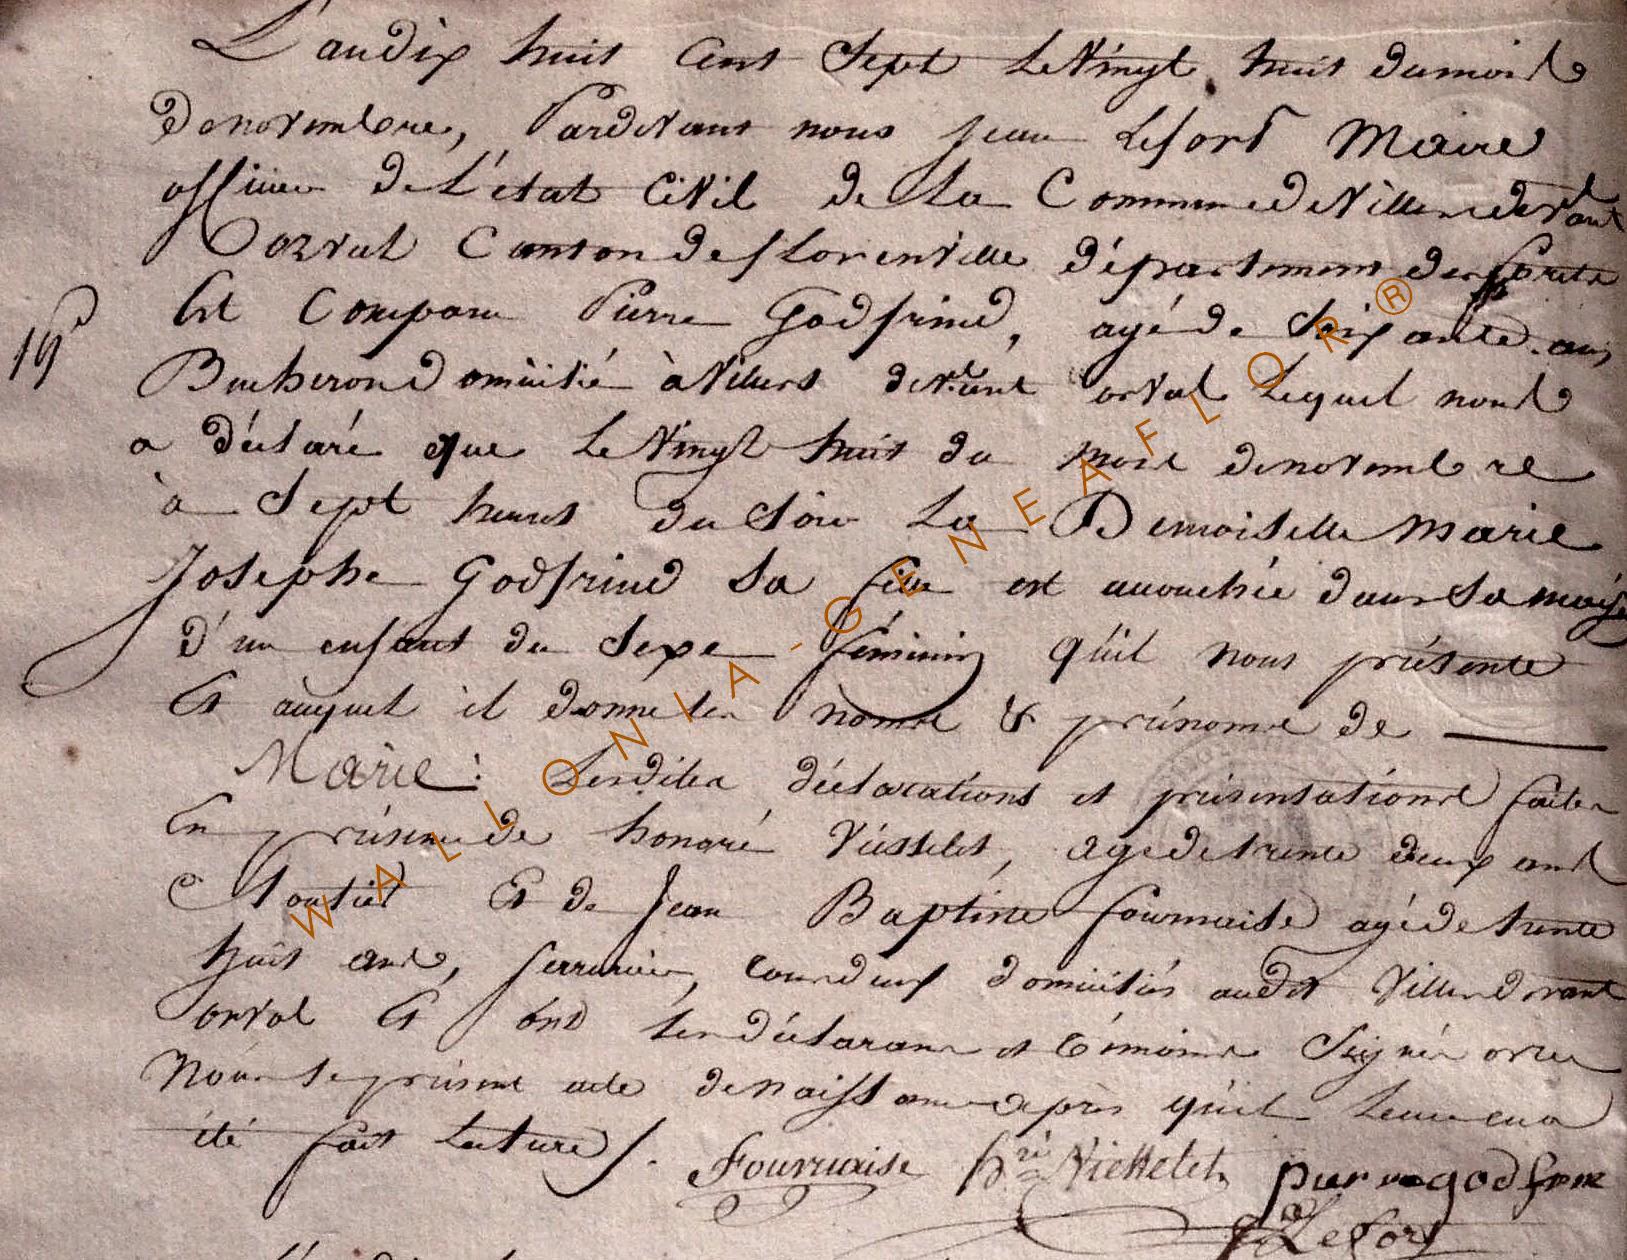 L'an dix huit Cent Sept Le Vingt huit du mois
De novembre, Pardevant nous Jean Lefort Maire
officier de L'état Civil de La Commune de Villers devant
Orval Canton de florenville département des forets
Est Comparu Pierre Godfrind, agé de Soixante ans
19
Bucheron Domicilié à Villers devant orval Lequel nous
a déclaré que Le Vingt huit du mois de novembre
à Sept heures du Soir La Demoiselle Marie
Josephe Godfrind Sa fille est accouchée dans Sa maison
d'un enfant du Sexe féminin qu'il nous présente
Et auquel il donne les noms & prénoms de
Marie : Lesdites déclarations et présentations faites
En présence de honoré Viesselet, agé de trente deux ans
Cloutier Et de Jean Baptiste fournaise agé de trente
huit ans, serrurier, tous deux domiciliés audit Villers devant
orval Et ont les déclarans et témoins Signé avec
Nous le présent acte de naissance après qu'il Leur en a
été fait Lecture /.
Fournaise hré Viesselet pierre godfrin
Lefort
WALLONIA - GENEAFLOR ®